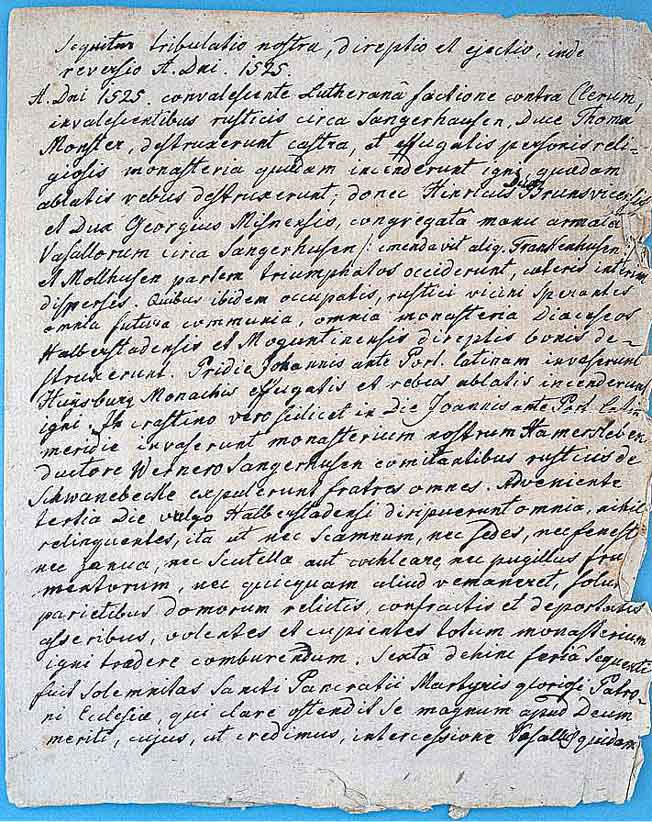 Sequitur tribulatio nostra, direptio et ejectio, inde
reversio A. Dni. 1525.
A. Dni 1525. convalescente Lutheranâ factione contra Clerum,
invalescentibus rusticis circa Sangerhausen, Duce Thoma
Monster, destruxerunt castra, et effugatis personis reli-
giosis monasteria quaedam incenderunt igni, quaedam
ablatis rebus destruxerunt; donec Hinricus Brunsvicensis
et Dux Georgius Misnensis, congregatâ manu armatâ
Vasallorum circa Sangerhusen /: emendavit aliq. Frankenhusen :/
et Mollhusen partem triumphatos occiderunt, caeteris interim
dispersis. Quibus ibidem occupatis, rustici vicini sperantes
omnia futura communia, omnia monasteria Diaeceseos
Halberstadensis et Moguntinensis direptis bonis de-
struxerunt. Pridie Johannis ante Port. latinam invaserunt
Huysburg Monachis effugatis et rebus ablatis incenderunt
igni. In crastino vero scilicet in Die Joannis ante Port. latin
meridie invaserunt monasterium nostrum Hamersleben
ductore Wernero Sangerhusen comitantibus rusticis de
Schwanebecke expulerunt fratres omnes. Adveniente
tertia die vulgo Halberstadensi diripuerunt omnia, nihil
relinquentes, ita ut nec scamnum, nec sedes, nec fenest
nec janua, nec scutella aut cochleare, nec pugillus fru
mentorum, nec quicquam aliud remaneret, solus
parietibus domorum relictis, confractis et deportatis
asseribus, volentes et cupientes totum monasterium
igni tradere comburendum. Sextâ dehinc feriâ sequenti
fuit solemnitas Sancti Pancratii Martyris gloriosi Patro-
ni Ecclesiae, qui clare ostendit se magnum apud Deum
meriti, cujus, ut credimus, intercessione Vasallus quidam